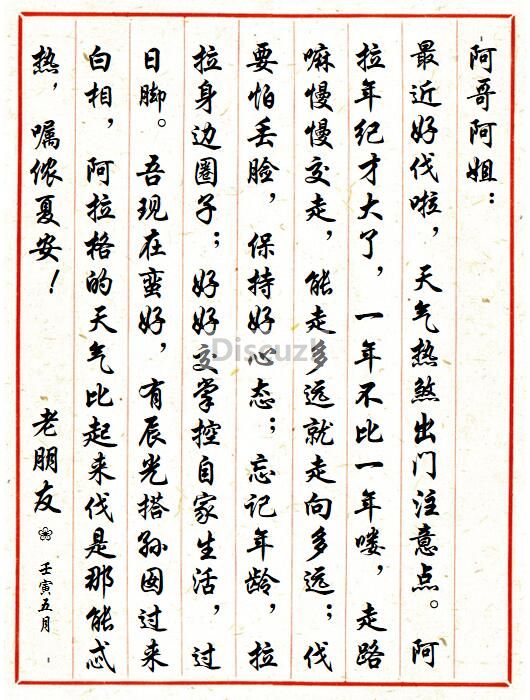 阿哥阿姐：
最近好伐啦，天气热煞出门注意点。阿
拉年纪才大了，一年不比一年喽，走路
嘛慢慢交走，能走多远就走向多远；伐
要怕丢脸，保持好心态；忘记年龄，拉
拉身边圈子；好好交掌控自家生活，过
日脚。吾现在蛮好，有辰光搭孙囡过来
白相，阿拉格的天气比起来伐是那能忒
热，嘱侬夏安！
老朋友
壬寅五月
Discuz!